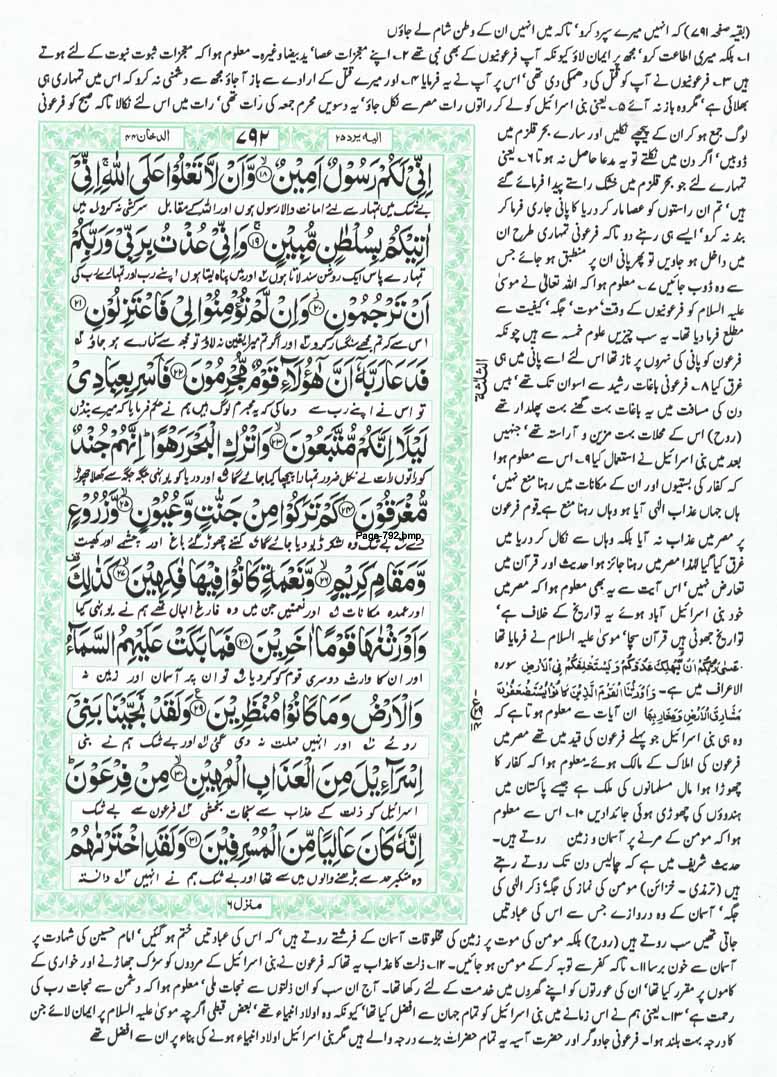 (بقیہ صفحہ ۷۹۱) کہ انہیں میرے سپرد کرو' تاکہ میں انہیں ان کے وطن شام لے جاؤں
۱۔ بلکہ میری اطاعت کرو' مجھ پر ایمان لاؤ کیونکہ آپ فرعونیوں کے بھی نبی تھے ۲۔ اپنے معجزات عصا' ید بیضا وغیرہ۔ معلوم ہوا کہ معجزات ثبوت نبوت کے لئے ہوتے
ہیں ۳۔ فرعونیوں نے آپ کو قتل کی دھمکی دی تھی' اس پر آپ نے یہ فرمایا ۴۔ اور میرے قتل کے ارادے سے باز آ جاؤ مجھ سے دشمنی نہ کرو کہ اس میں تمہاری ہی
بھلائی ہے' مگر وہ باز نہ آئے ۵۔ یعنی بنی اسرائیل کو لے کر راتوں رات مصر سے نکل جاؤ' یہ دسویں محرم جمعہ کی رات تھی' رات میں اس لئے نکالا تاکہ صبح کو فرعونی
لوگ جمع ہو کر ان کے پیچھے نکلیں اور سارے بحر قلزم میں
ڈوبیں' اگر دن میں نکلتے تو یہ مدعا حاصل نہ ہوتا ۶۔ یعنی
تمہارے لئے جو بحر قلزم میں خشک راستے پیدا فرمائے گئے
ہیں' تم ان راستوں کو عصا مار کر دریا کا پانی جاری فرما کر
بند نہ کرو' ایسے ہی رہنے دو تاکہ فرعونی تمہاری طرح ان
میں داخل ہو جاویں تو پھر پانی ان پر منطبق ہو جائے جس
سے وہ ڈوب جائیں ۷۔ معلوم ہوا کہ اللہ تعالیٰ نے موسیٰ
علیہ السلام کو فرعونیوں کے وقت' موت' جگہ' کیفیت سے
مطلع فرما دیا تھا۔ یہ سب چیزیں علوم خمسہ سے ہیں چونکہ
فرعون کو پانی کی نہروں پر ناز تھا اس لئے اسے پانی میں ہی
غرق کیا ۸۔ فرعونی باغات رشید سے اسوان تک تھے' بیس
دن کی مسافت میں یہ باغات بہت گھنے بہت پھلدار تھے
(روح) اس کے محلات بہت مزین و آراستہ تھے' جنہیں
بعد میں بنی اسرائیل نے استعمال کیا ۹۔ اس سے معلوم ہوا
کہ کفار کی بستیوں اور ان کے مکانات میں رہنا منع نہیں'
ہاں جہاں عذاب الٰہی آیا ہو وہاں رہنا منع ہے۔ قوم فرعون
پر مصر میں عذاب نہ آیا بلکہ وہاں سے نکال کر دریا میں
غرق کیا گیا لہٰذا مصر میں رہنا جائز ہوا حدیث اور قرآن میں
تعارض نہیں' اس آیت سے یہ بھی معلوم ہوا کہ مصر میں
خود بنی اسرائیل آباد ہوئے یہ تواریخ کے خلاف ہے'
تواریخ جھوٹی ہیں قرآن سچا' موسیٰ علیہ السلام نے فرمایا تھا
عَسٰى رَبُّكُمْ اَنْ يُّهْلِكَ عَدُوَّكُمْ وَيَسْتَخْلِفَكُمْ فِى الْاَرْضِ سورہ
الاعراف میں ہے۔ وَاَوْرَثْنَا الْقَوْمَ الَّذِيْنَ كَانُوْا يُسْتَضْعَفُوْنَ
مَشَارِقَ الْاَرْضِ وَمَغَارِبَهَا ان آیات سے معلوم ہوتا ہے کہ
وہ ہی بنی اسرائیل جو پہلے فرعون کی قید میں تھے مصر میں
فرعون کی املاک کے مالک ہوئے۔ معلوم ہوا کہ کفار کا
چھوڑا ہوا مال مسلمانوں کی ملک ہے جیسے پاکستان میں
ہندوؤں کی چھوڑی ہوئی جائدادیں ۱۰۔ اس سے معلوم
ہوا کہ مومن کے مرنے پر آسمان و زمین روتے ہیں۔
حدیث شریف میں ہے کہ چالیس دن تک روتے رہتے
ہیں (ترمذی۔ خزائن) مومن کی نماز کی جگہ' ذکر الٰہی کی
جگہ' آسمان کے وہ دروازے جس سے اس کی عبادتیں
الیہ یرد ۲۵
۷۹۲
الدخان ۴۴
اِنِّيْ لَكُمْ رَسُوْلٌ اَمِيْنٌ ۙ﴿۱۸﴾ وَّاَنْ لَّا تَعْلُوْا عَلَى اللّٰهِ ۚ اِنِّيْٓ
بے شک میں تمہارے لئے امانت والا رسول ہوں اور اللہ کے مقابل سرکشی نہ کرو میں
اٰتِيْكُمْ بِسُلْطٰنٍ مُّبِيْنٍ ۚ﴿۱۹﴾ وَاِنِّيْ عُذْتُ بِرَبِّيْ وَرَبِّكُمْ
تمہارے پاس ایک روشن سند لاتا ہوں اور میں پناہ لیتا ہوں اپنے رب اور تمہارے رب کی
اَنْ تَرْجُمُوْنِ ۙ﴿۲۰﴾ وَاِنْ لَّمْ تُؤْمِنُوْا لِيْ فَاعْتَزِلُوْنِ ﴿۲۱﴾
اس سے کہ تم مجھے سنگسار کرو اور اگر تم میرا یقین نہ لاؤ تو مجھ سے کنارے ہو جاؤ
فَدَعَا رَبَّهٗٓ اَنَّ هٰٓؤُلَآءِ قَوْمٌ مُّجْرِمُوْنَ ﴿۲۲﴾ فَاَسْرِ بِعِبَادِيْ
تو اس نے اپنے رب سے دعا کی کہ یہ مجرم لوگ ہیں ہم نے حکم فرمایا کہ میرے بندوں
لَيْلًا اِنَّكُمْ مُّتَّبَعُوْنَ ۙ﴿۲۳﴾ وَاتْرُكِ الْبَحْرَ رَهْوًا ؕ اِنَّهُمْ جُنْدٌ
کو راتوں رات لے نکل ضرور تمہارا پیچھا کیا جائے گا اور دریا کو یونہی جگہ جگہ سے کھلا چھوڑ
مُّغْرَقُوْنَ ﴿۲۴﴾ كَمْ تَرَكُوْا مِنْ جَنّٰتٍ وَّعُيُوْنٍ ۙ﴿۲۵﴾ وَّزُرُوْعٍ
دے بے شک وہ لشکر ڈبو دیا جائے گا کتنے چھوڑ گئے باغ اور چشمے اور کھیت
Page-792.bmp
وَّمَقَامٍ كَرِيْمٍ ۙ﴿۲۶﴾ وَّنَعْمَةٍ كَانُوْا فِيْهَا فٰكِهِيْنَ ۙ﴿۲۷﴾ كَذٰلِكَ
اور عمدہ مکانات اور نعمتیں جن میں وہ فارغ البال تھے ہم نے یونہی کیا
وَاَوْرَثْنٰهَا قَوْمًا اٰخَرِيْنَ ﴿۲۸﴾ فَمَا بَكَتْ عَلَيْهِمُ السَّمَآءُ
اور ان کا وارث دوسری قوم کو کر دیا تو ان پر آسمان اور زمین نہ
وَالْاَرْضُ وَمَا كَانُوْا مُنْظَرِيْنَ ﴿۲۹﴾ وَلَقَدْ نَجَّيْنَا بَنِيْٓ
روئے اور انہیں مہلت نہ دی گئی اور بے شک ہم نے بنی
اِسْرَآءِيْلَ مِنَ الْعَذَابِ الْمُهِيْنِ ۙ﴿۳۰﴾ مِنْ فِرْعَوْنَ ؕ
اسرائیل کو ذلت کے عذاب سے نجات بخشی فرعون سے بے شک
اِنَّهٗ كَانَ عَالِيًا مِّنَ الْمُسْرِفِيْنَ ﴿۳۱﴾ وَلَقَدِ اخْتَرْنٰهُمْ
وہ متکبر حد سے بڑھنے والوں میں سے تھا اور بے شک ہم نے انہیں دانستہ
منزل ۶
الثلثة
جاتی تھیں سب روتے ہیں (روح) بلکہ مومن کی موت پر زمین کی مخلوقات آسمان کے فرشتے روتے ہیں' کہ اس کی عبادتیں ختم ہو گئیں' امام حسین کی شہادت پر
آسمان سے خون برسا ۱۱۔ تاکہ کفر سے توبہ کر کے مومن ہو جائیں۔ ۱۲۔ ذلت کا عذاب یہ تھا کہ فرعون نے بنی اسرائیل کے مردوں کو سڑک جھاڑنے اور خواری کے
کاموں پر مقرر کیا تھا' ان کی عورتوں کو اپنے گھروں میں خدمت کے لئے رکھا تھا۔ آج ان سب کو ان ذلتوں سے نجات ملی' معلوم ہوا کہ دشمن سے نجات رب کی
رحمت ہے' ۱۳۔ یعنی ہم نے اس زمانے میں بنی اسرائیل کو تمام جہان سے افضل کیا تھا' کیونکہ وہ اولاد انبیاء تھے' بعض قبطی اگرچہ موسیٰ علیہ السلام پر ایمان لائے جن
کا درجہ بہت بلند ہوا۔ فرعونی جادوگر اور حضرت آسیہ یہ تمام حضرات بڑے درجہ والے ہیں مگر بنی اسرائیل اولاد انبیاء ہونے کی بناء پر ان سے افضل تھے